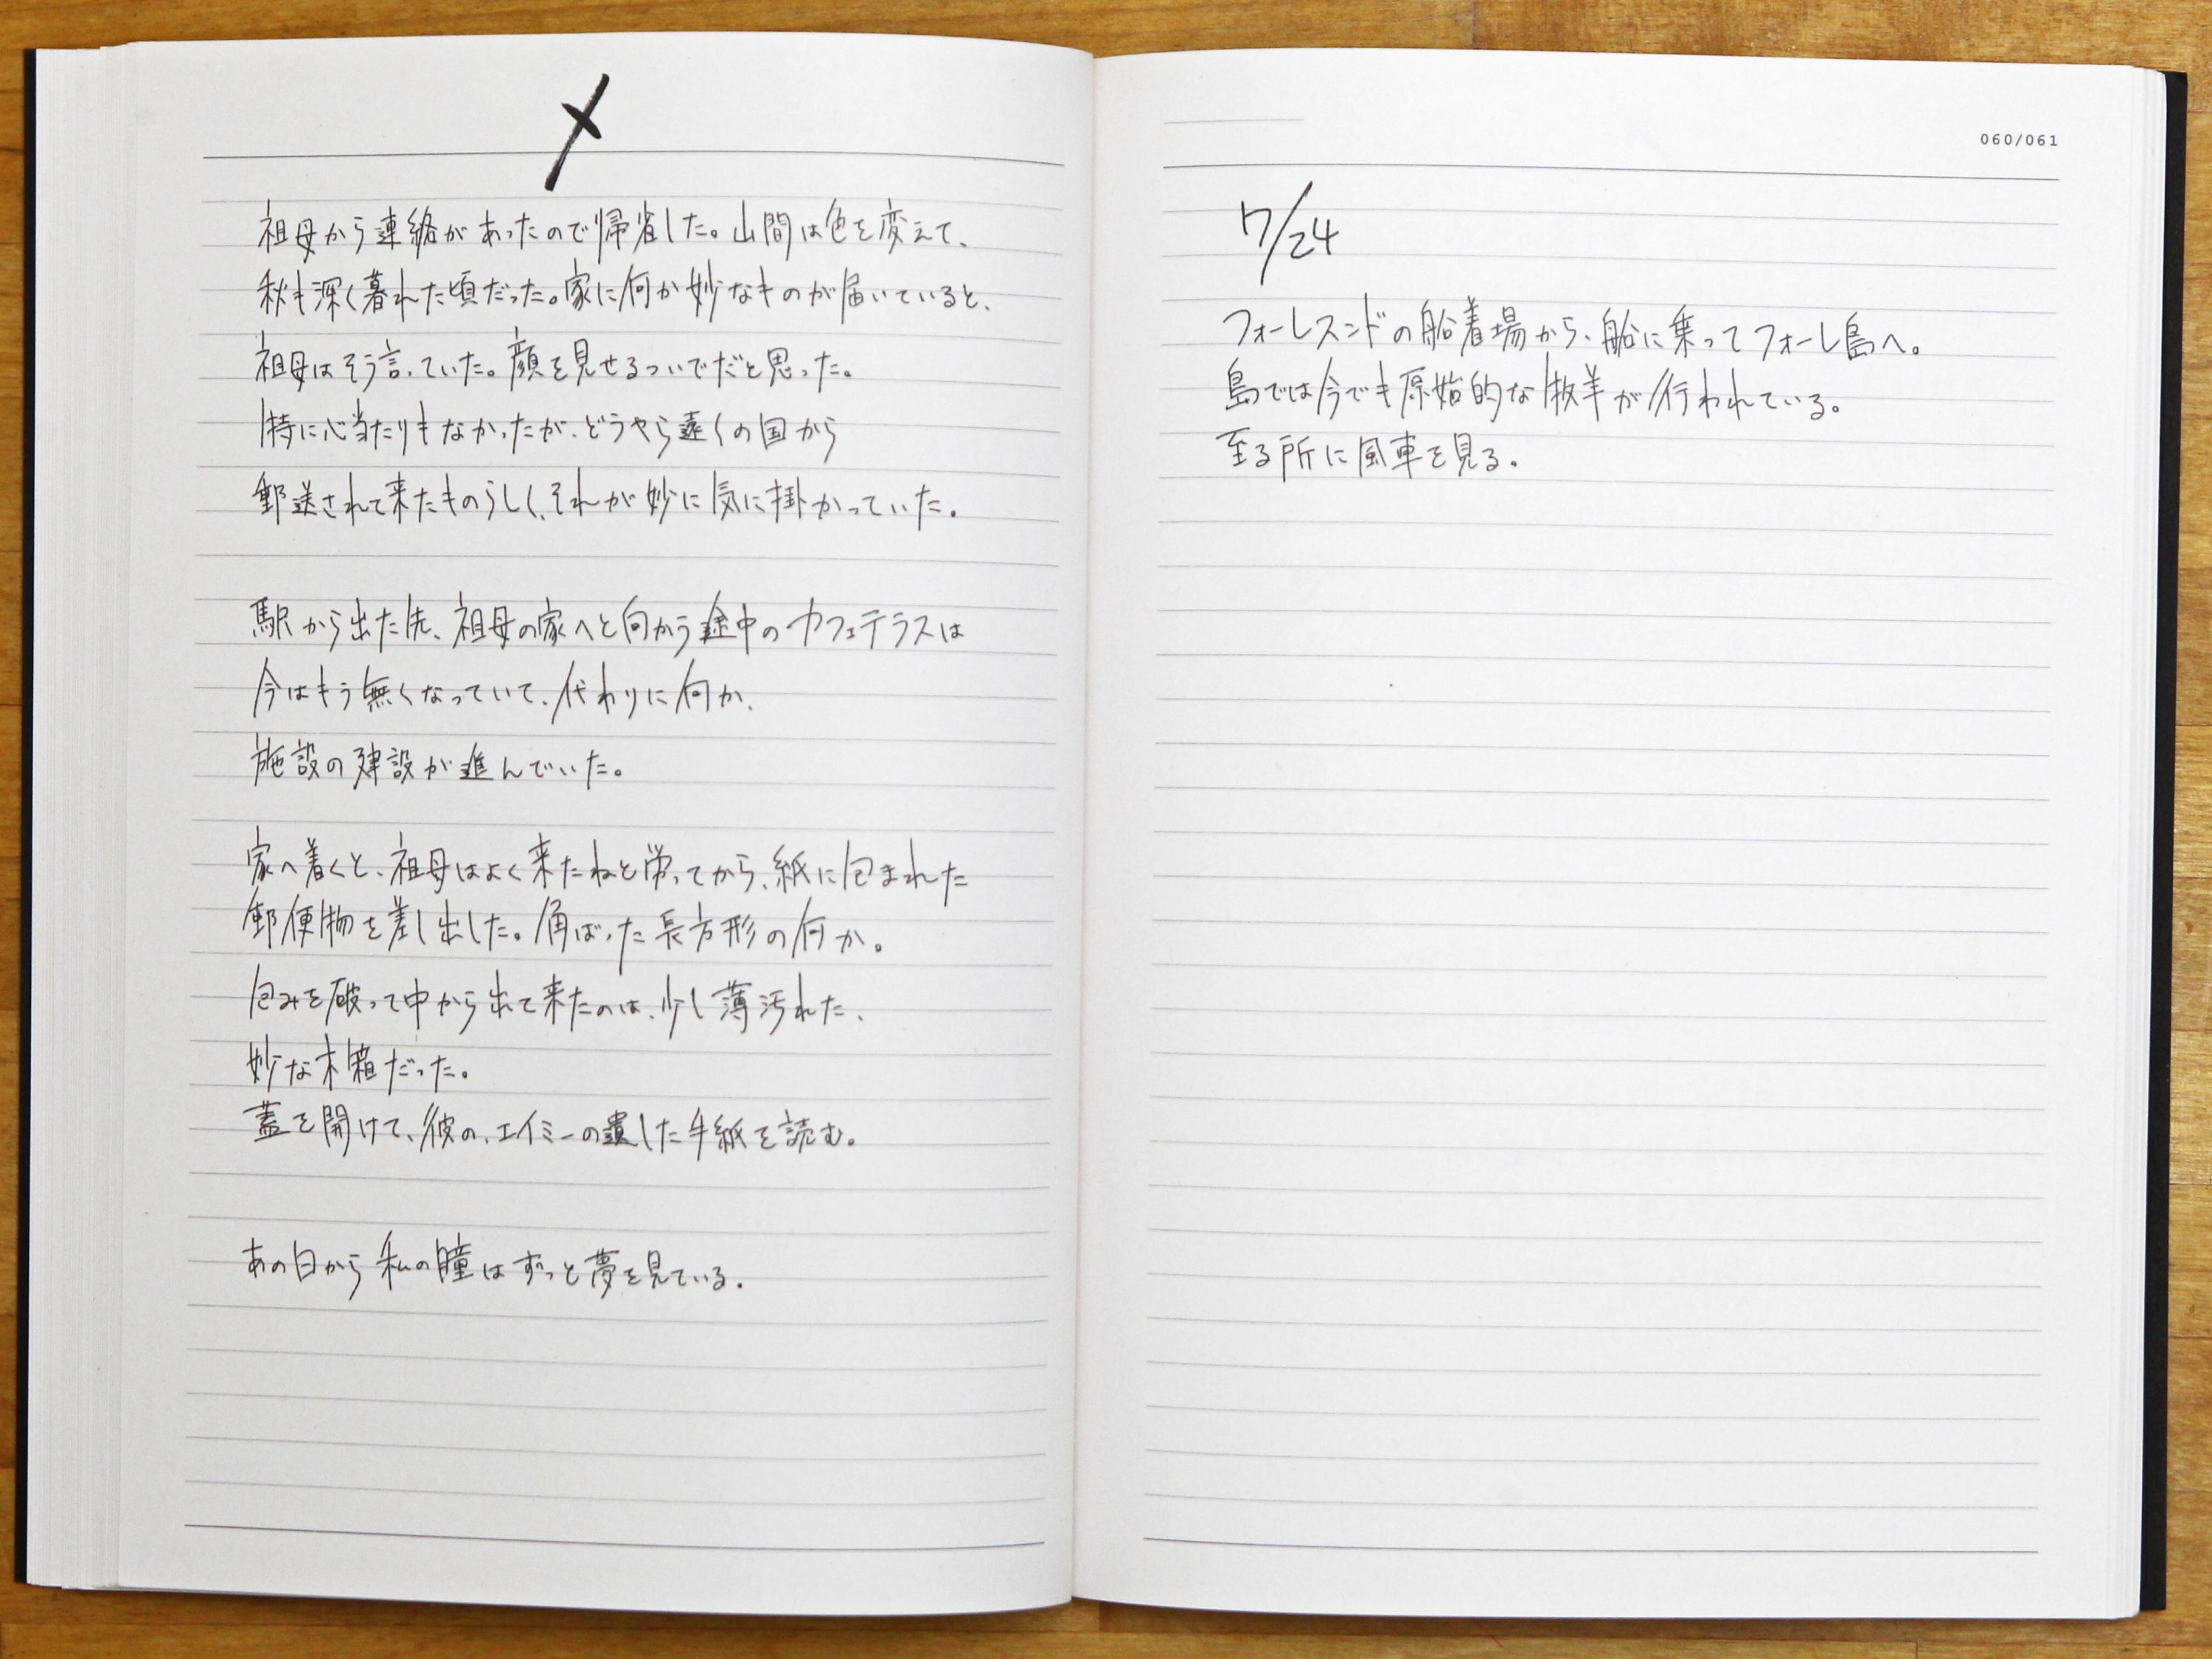 祖母から連絡があったので帰省した。山間は色を変えて、
秋も深く暮れた頃だった。家に何か妙なものが届いていると、
祖母はそう言っていた。顔を見せるついでだと思った。
特に心当たりもなかったが、どうやら遠くの国から
郵送されて来たものらしく、それが妙に気に掛かっていた。
駅から出た先、祖母の家へと向かう途中のカフェテラスは
今はもう無くなっていて、代わりに何か、
施設の建設が進んでいた。
家へ着くと、祖母はよく来たねと労ってから、紙に包まれた
郵便物を差し出した。角ばった長方形の何か。
包みを破って中から出て来たのは、少し薄汚れた、
妙な木箱だった。
蓋を開けて、彼の、エイミーの遺した手紙を読む。
あの日から私の瞳はずっと夢を見ている。
060/061
7/24
フォーレスンドの船着場から、船に乗ってフォーレ島へ。
島では今でも原始的な牧羊が行われている。
至る所に風車を見る。